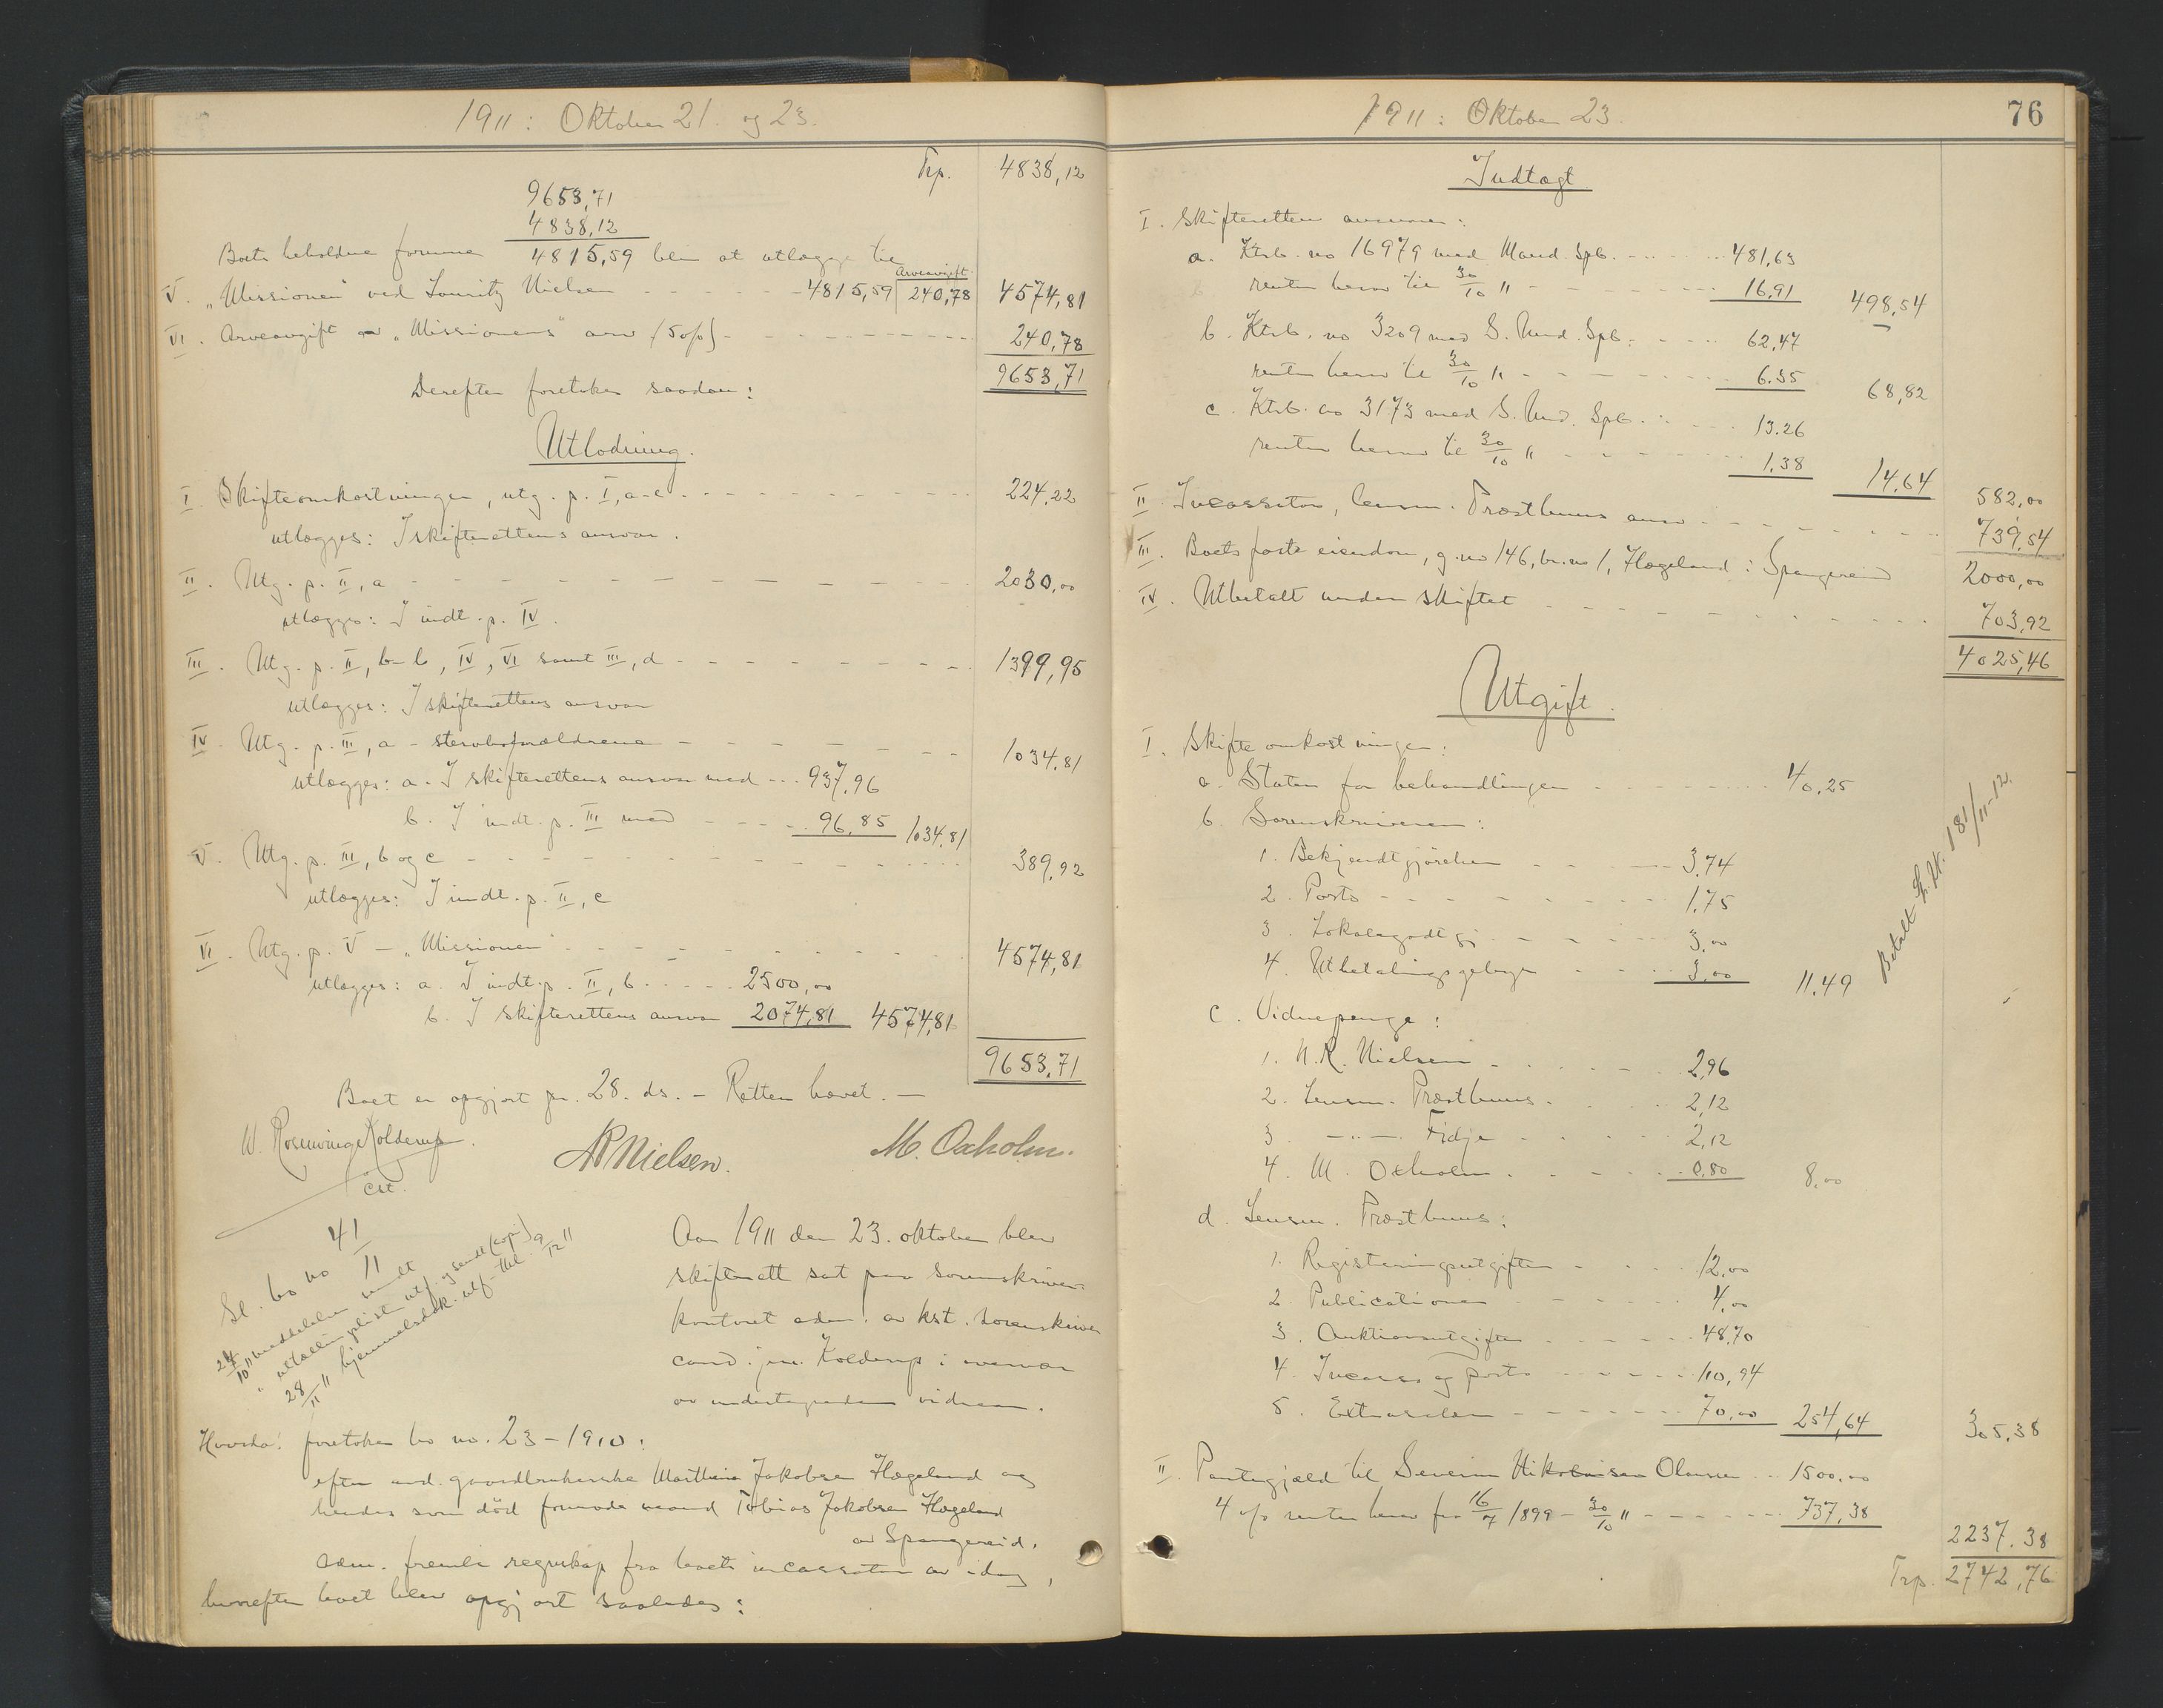 1911: Oktober 21. og 23.
Trp. 4838,12
9653,71
4838,12
Boets beholdne formue 4815,59 blir at utlægge til
Arveavgift
V. "Missionen" ved Lauritz Nielsen - - - 4815,59 240,78 4574,81
VI. Arveavgift av "Missionens" arv (5 o/o) - - - 240,78
9653,71
Derefter foretokes saadan:
Utlodning.
I. Skifteomkostninger, utg. p. I, a-c - - - 224,22
utlægges: I skifterettens ansvar.
II. Utg. p. II, a - - - 2030,00
utlægges: I indt. p. IV.
III. Utg. p. II, b-b, IV, VI samt III, d - - - 1399,95
utlægges: I skifterettens ansvar
IV. Utg. p. III, a - stervboforældrene - - - 1034,81
utlægges: a. I skifterettens ansvar med - - - 937,96
b. I indt. p. III med - - - 96,85 1034,81
V. Utg. p. III, b og c - - - 389,92
utlægges: I indt. p. II, c
VI. Utg. p. V - "Missionen" - - - 4574,81
utlægges: a. I indt. p. II, b - - - 2500,00
b. I skifterettens ansvar 2074,81 4574,81
9653,71
Boet er opgjort pr. 28. ds. - Retten hævet. -
W. Rosenvinge Kolderup.
cst.
NRNielsen.
M. Oxholm.
Sl. bo no 41/11
24/10 11 meddelelse sendt
" utlodningslist utf. og sendt (copi) 9/12 11
28/11 11 hjemmelsdok. utf.
Aar 1911 den 23. oktober blev
skifterett sat paa sorenskriver-
kontoret adm. av kst. sorenskriver
cand. jur. Kolderup i overvær
av undertegnede vidner.
Hvorda: foretokes bo no. 23-1910:
efter avd. gaardbrukerske Marthina Jakobsen Hægeland og
hendes som død formodede mand Tobias Jakobsen Hægeland
av Spangereid.
Adm. fremla regnskap fra boets incassator av idag,
hvorefter boet blev opgjort saaledes:
1911: Oktober 23.
76
Indtægt
I. Skifterettens ansvar:
a. Ktrb. no 16979 med Mand. Spb. - - - 481,63
renter herav til 30/10 11 - - - 16,91 498,54
b. Ktrb. no 3209 med S. Und. Spb. - - - 62,47
renter herav til 30/10 11 - - - 6.35 68,82
c. Ktrb. no 3173 med S. Und. Spb. - - - 13.26
renter herav til 30/10 11 - - - 1,38 14,64 582,00
II. Incassator, lensm. Præsthuus ansv. - - - 739,54
III. Boets faste eiendom, g.no 146, br.no 1, Hægeland i Spangereid 2000,00
IV. Utbetalt under skiftet - - - 703,92
4025,46
Utgift.
I. Skifteomkostninger:
a. Staten for behandlingen - - - 40,25
b. Sorenskriveren:
1. Bekjendtgjørelsen - - - 3,74
2. Porto - - - 1,75
3. Lokalegodtgj. - - - 3,00
4. Utbetalingsgebyr - - - 3,00 11,49
Betalt 181/11-12.
c. Vidnepenge:
1. N.R. Nielsen - - - 2,96
2. Lensm. Præsthuus - - - 2,12
3. -"- Fidje - - - 2,12
4. M. Oxholm - - - 0,80 8,00
d. Lensm. Præsthuus:
1. Registreringsutgifter - - - 12,00
2. Publicationer - - - 4,00
3. Auktionsutgifter - - - 48,70
4. Incasso og porto - - - 110,94
5. Extrasalær - - - 70,00 254,64 305,38
II. Pantegjæld til Severin Nikolaisen Olaussen - - 1500,00
4 o/o renter herav fra 16/7 1899 - 30/10 11 - - - 737,38
2237.38
Trp. 2742,76